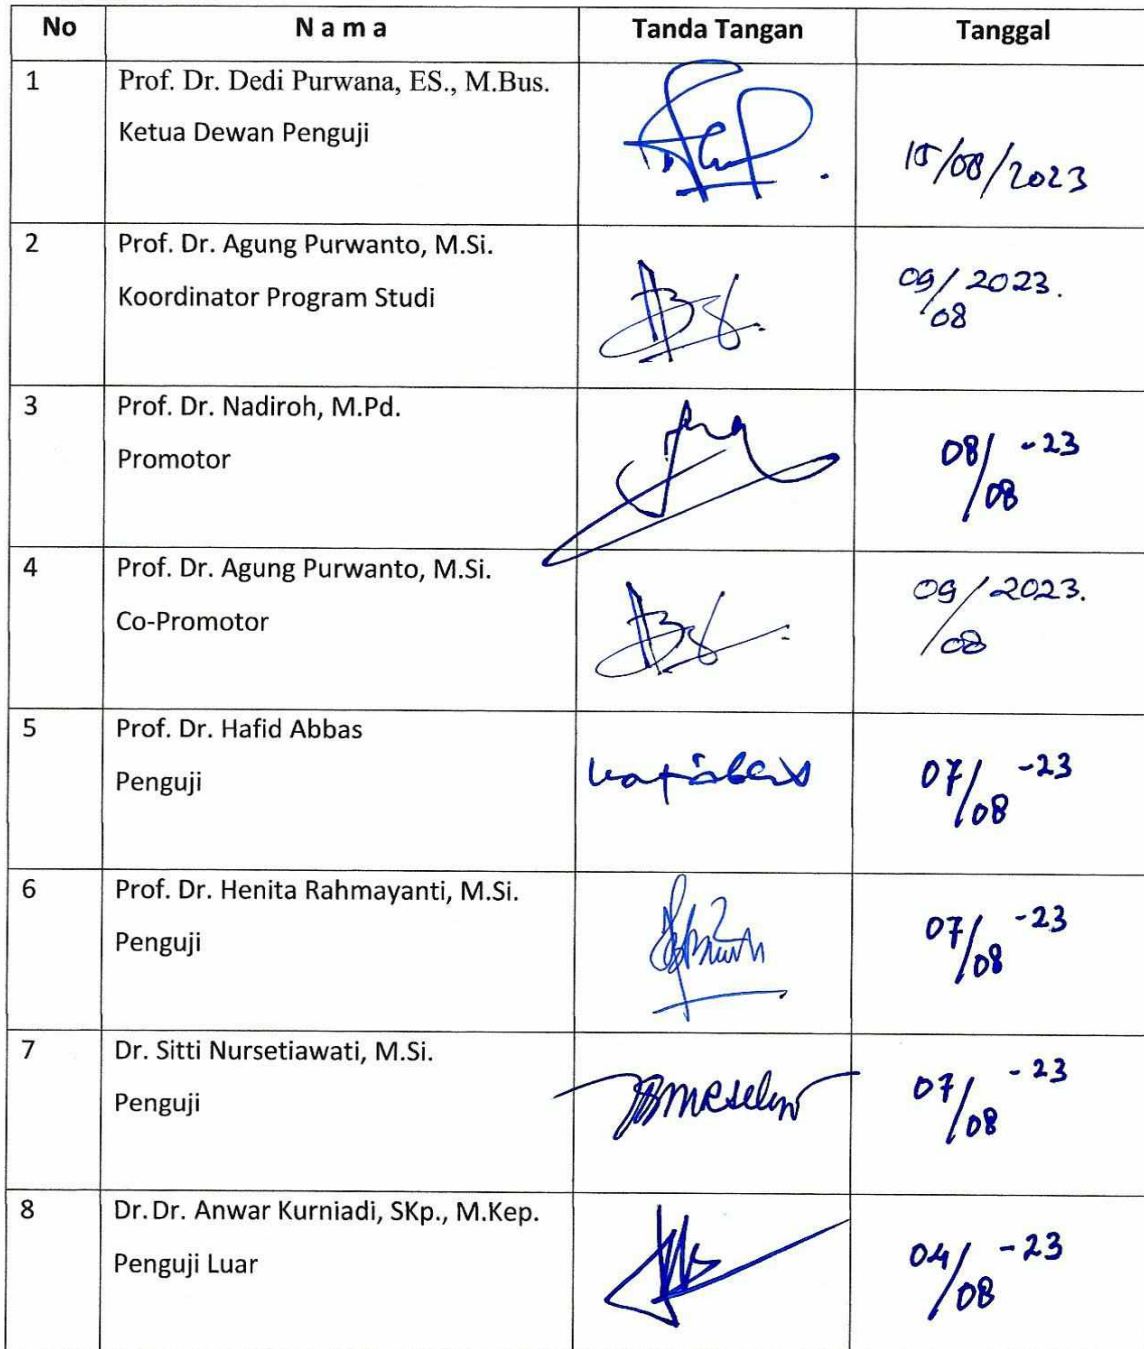 No N a m a Tanda Tangan Tanggal
1 Prof. Dr. Dedi Purwana, ES., M.Bus.
Ketua Dewan Penguji
15/08/2023
2 Prof. Dr. Agung Purwanto, M.Si.
Koordinator Program Studi
09/08 2023.
3 Prof. Dr. Nadiroh, M.Pd.
Promotor
08/08 -23
4 Prof. Dr. Agung Purwanto, M.Si.
Co-Promotor
09/08 2023.
5 Prof. Dr. Hafid Abbas
Penguji
07/08 -23
6 Prof. Dr. Henita Rahmayanti, M.Si.
Penguji
07/08 -23
7 Dr. Sitti Nursetiawati, M.Si.
Penguji
07/08 -23
8 Dr. Dr. Anwar Kurniadi, SKp., M.Kep.
Penguji Luar
04/08 -23